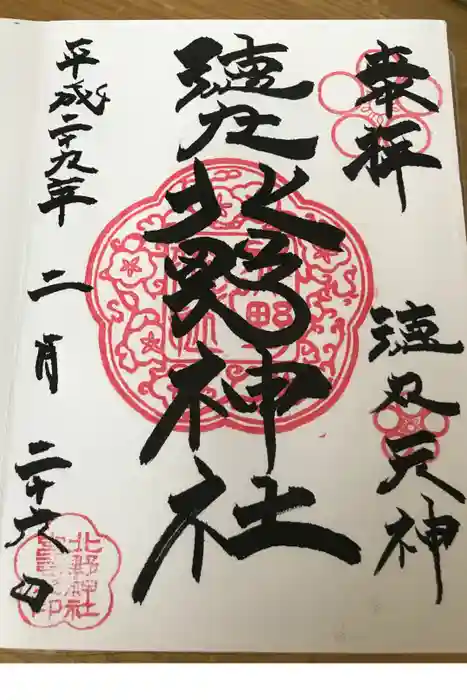 奉拝
徳丸天神
徳丸北野神社
平成二十九年 二月 二十六日
北野神社